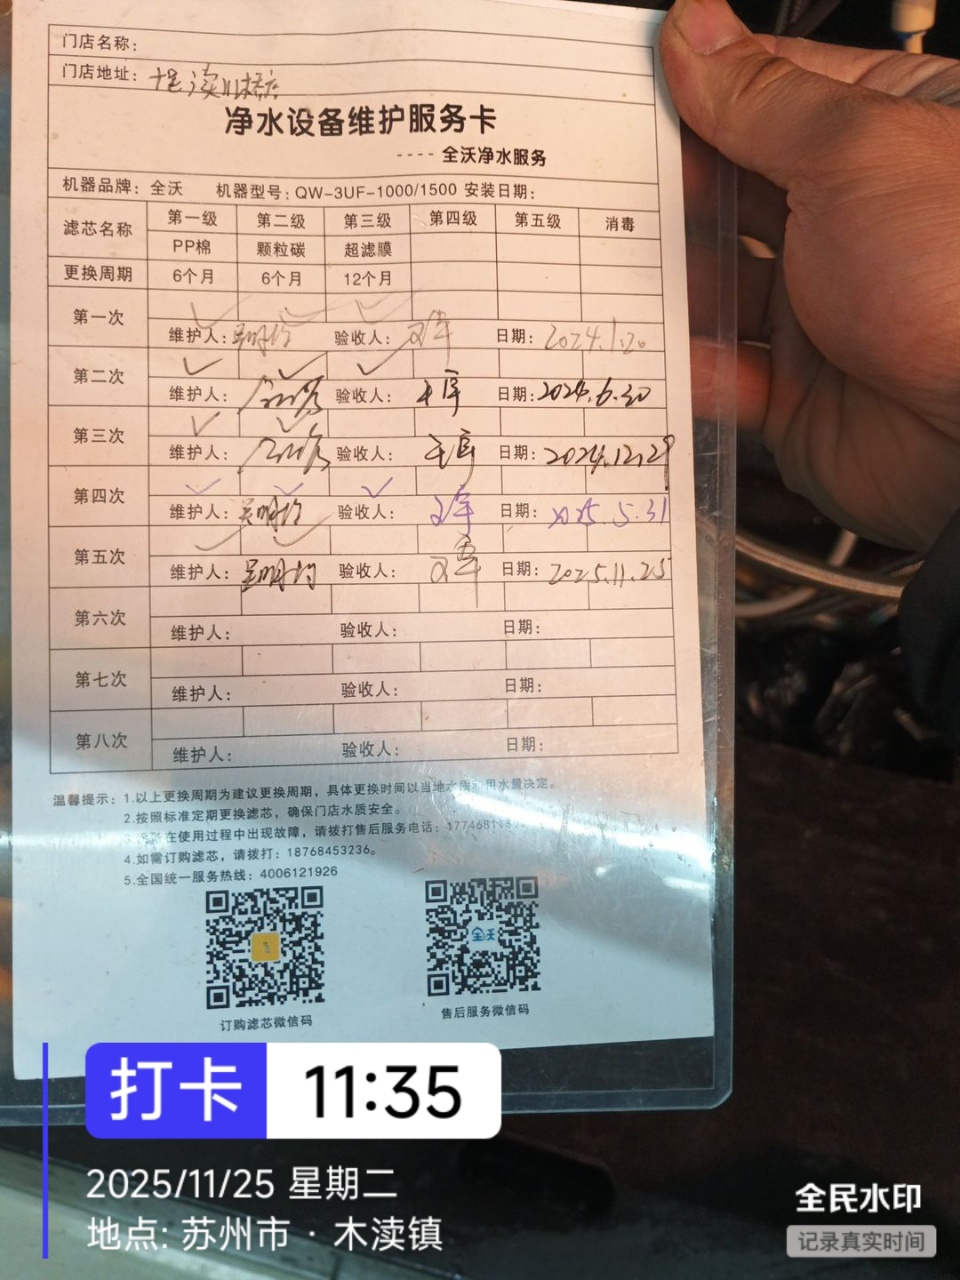 门店名称：
门店地址：
净水设备维护服务卡
---- 全沃净水服务
机器品牌：全沃 机器型号：QW-3UF-1000/1500 安装日期：
滤芯名称 第一级 第二级 第三级 第四级 第五级 消毒
PP棉 颗粒碳 超滤膜
更换周期 6个月 6个月 12个月
第一次 ✓ ✓ ✓
维护人： 验收人： 日期：2024.1.20
第二次 ✓ ✓ ✓
维护人： 验收人： 日期：2024.6.30
第三次 ✓ ✓
维护人： 验收人： 日期：2024.12.29
第四次 ✓ ✓ ✓
维护人： 验收人： 日期：2025.5.31
第五次 ✓ ✓
维护人： 验收人： 日期：2025.11.25
第六次
维护人： 验收人： 日期：
第七次
维护人： 验收人： 日期：
第八次
维护人： 验收人： 日期：
温馨提示：1.以上更换周期为建议更换周期，具体更换时间以当地水质和用水量决定。
2.按照标准定期更换滤芯，确保门店水质安全。
在使用过程中出现故障，请拨打售后服务电话：
4.如需订购滤芯，请拨打：18768453236。
5.全国统一服务热线：4006121926
全沃
订购滤芯微信码 售后服务微信码
打卡 11:35
2025/11/25 星期二
地点: 苏州市 · 木渎镇
全民水印
记录真实时间